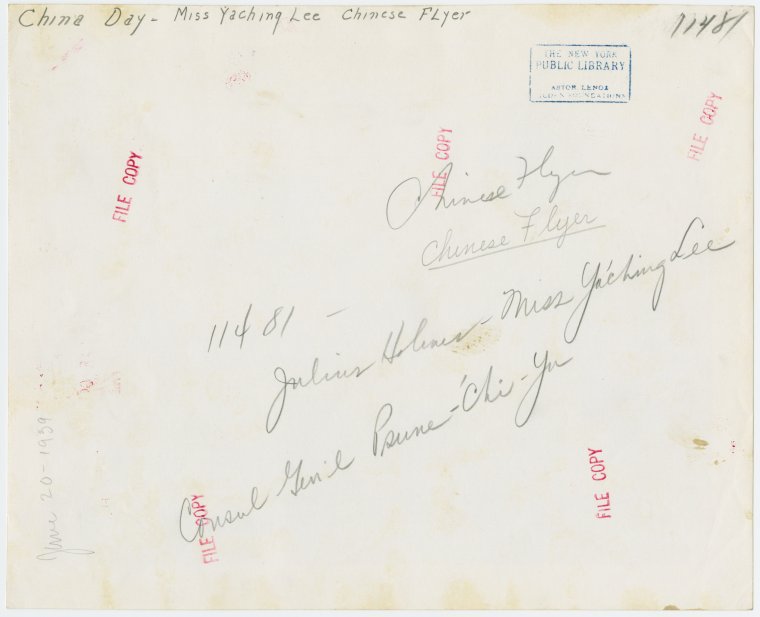 China Day - Miss Yaching Lee Chinese Flyer
11481
THE NEW YORK
PUBLIC LIBRARY
ASTOR LENOX
TILDEN FOUNDATIONS
FILE COPY
FILE COPY
FILE COPY
Chinese Flyer
Chinese Flyer
11481 -
Julius Holmes - Miss Yaching Lee
Consul Gen'l Psune-Chi-Yu
June 20-1939
FILE COPY
FILE COPY